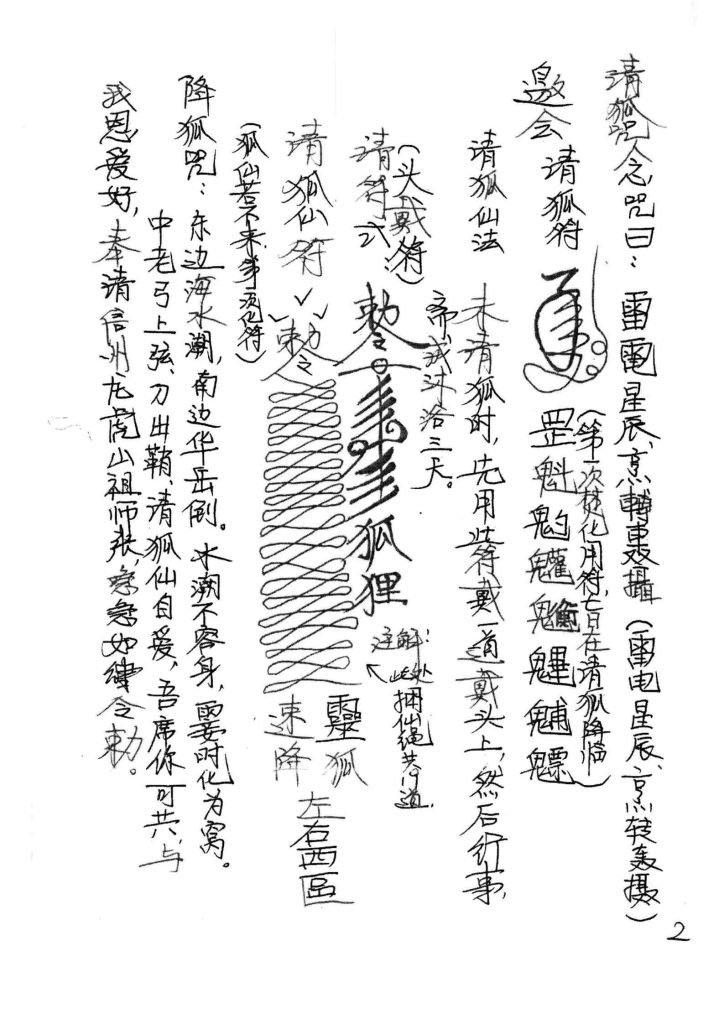 请狐咒念咒曰：雷電星辰、烹轉轰攝（雷电星辰、烹转轰摄）
邀会请狐符
罡魁魈魓
（第一次焚化用符，七日在请狐降临）
请狐仙法 未请狐时，先用此符戴一道戴头上，然后行事，
斋戒沐浴三天。
（头戴符）
请符式：敕令 狐狸
注解：
此处
捆仙绳共 道
请狐仙符 敕令 靈狐速降 左右西區
（狐仙若不来第二次化符）
降狐咒：东边海水潮，南边华岳倒。水潮不容身，要时化为窝。
中老弓上弦、刀出鞘、请狐仙自爱，吾席你可共，与
我恩爱好，奉请信州龙虎山祖师张，急急如律令敕。
2